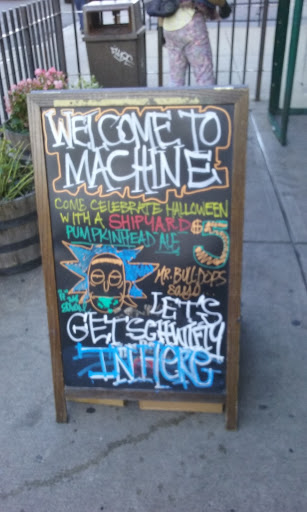 WELCOME TO
MACHINE
COME CELEBRATE HALLOWEEN
WITH A SHIPYARD
PUMPKINHEAD ALE
$5
MR. BULLDOPS
says
LET'S
GET SCHWIFTY
IN HERE